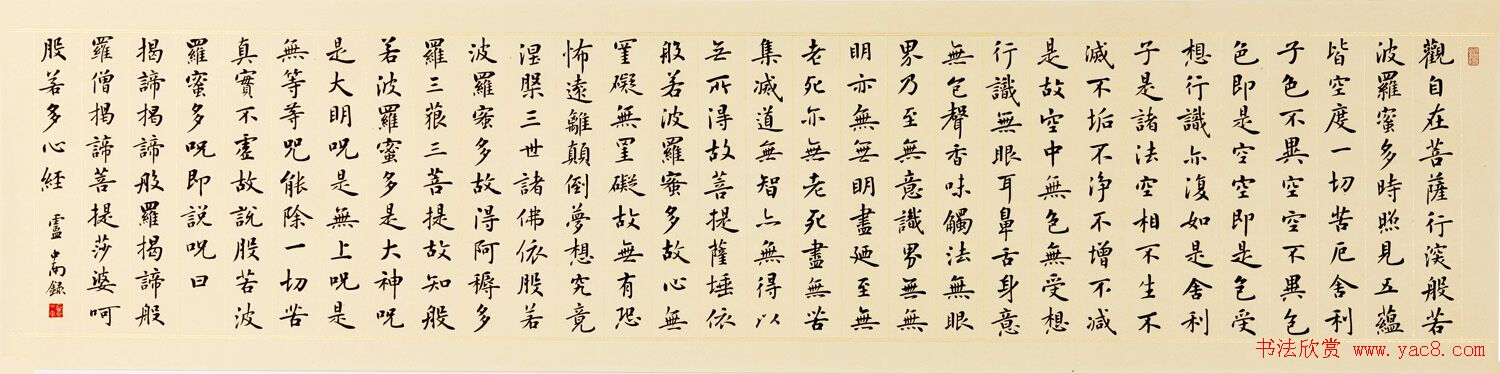 觀自在菩薩行深般若
波羅蜜多時照見五蘊
皆空度一切苦厄舍利
子色不異空空不異色
色即是空空即是色受
想行識亦復如是舍利
子是諸法空相不生不
滅不垢不淨不增不減
是故空中無色無受想
行識無眼耳鼻舌身意
無色聲香味觸法無眼
界乃至無意識界無無
明亦無無明盡廼至無
老死亦無老死盡無苦
集滅道無智亦無得以
无所得故菩提薩埵依
般若波羅蜜多故心無
罣礙無罣礙故無有恐
怖遠離顛倒夢想究竟
涅槃三世諸佛依般若
波羅蜜多故得阿耨多
羅三藐三菩提故知般
若波羅蜜多是大神呪
是大明呪是無上呪是
無等等咒能除一切苦
真實不虛故說般若波
羅蜜多呪即說呪曰
揭諦揭諦般羅揭諦般
羅僧揭諦菩提莎婆呵
般若多心經 盧中南錄
书法欣赏 www.yac8.com